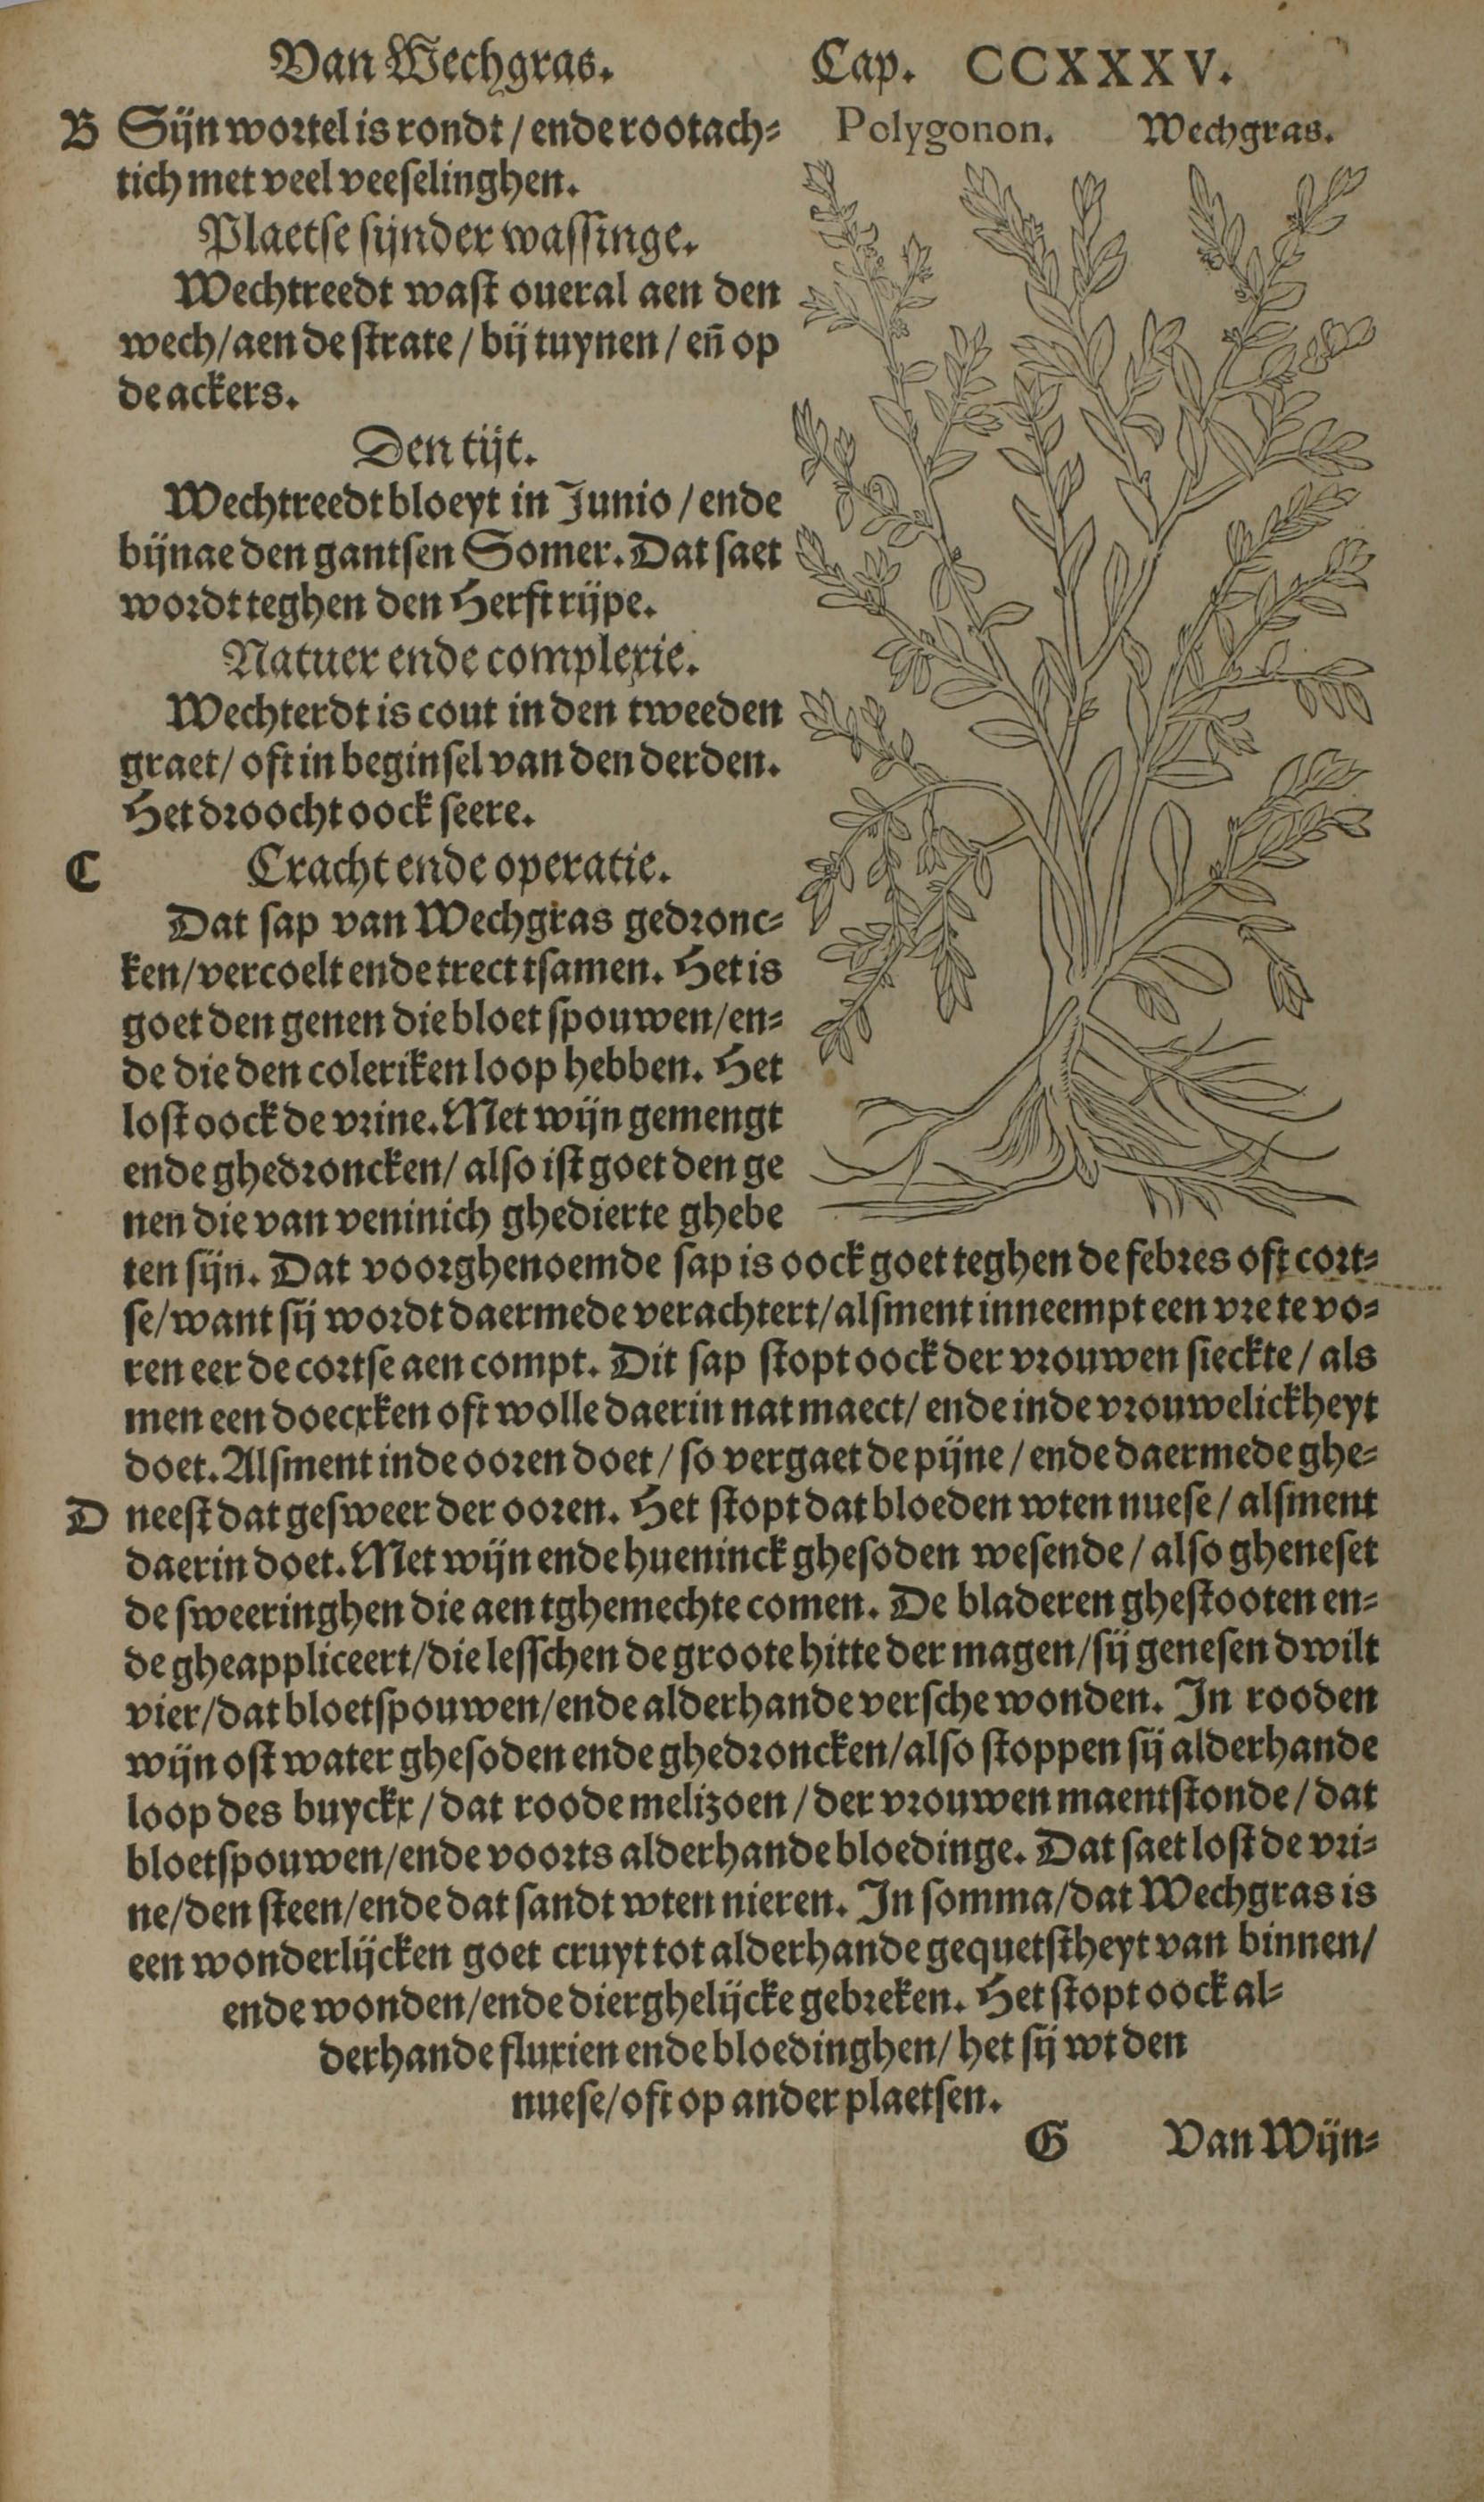 Van Wechgras. Cap. CCXXXV.
Polygonon. Wechgras.
B Sijn wortel is rondt / ende rootach⸗
tich met veel veeselinghen.
Plaetse sijnder wassinge.
Wechtreedt wast oueral aen den
wech/aen de strate / bij tuynen / eñ op
de ackers.
Den tijt.
Wechtreedt bloeyt in Junio / ende
bijnae den gantsen Somer. Dat saet
wordt teghen den Herfst rijpe.
Natuer ende complexie.
Wechterdt is cout in den tweeden
graet/ oft in beginsel van den derden.
Het droocht oock seere.
C Cracht ende operatie.
Dat sap van Wechgras gedronc⸗
ken/vercoelt ende trect tsamen. Het is
goet den genen die bloet spouwen/en⸗
de die den coleriken loop hebben. Het
lost oock de vrine. Met wijn gemengt
ende ghedroncken/ also ist goet den ge
nen die van veninich ghedierte ghebe
ten sijn. Dat voorghenoemde sap is oock goet teghen de febres oft cort⸗
se/want sij wordt daermede verachtert/alsment inneempt een vre te vo⸗
ren eer de cortse aen compt. Dit sap stopt oock der vrouwen sieckte / als
men een doecxken oft wolle daerin nat maect/ ende inde vrouwelickheyt
doet. Alsment inde ooren doet / so vergaet de pijne / ende daermede ghe⸗
D neest dat gesweer der ooren. Het stopt dat bloeden wten nuese / alsment
daerin doet. Met wijn ende hueninck ghesoden wesende / also gheneset
de sweeringhen die aen tghemechte comen. De bladeren ghestooten en⸗
de gheappliceert/die lesschen de groote hitte der magen/sij genesen dwilt
vier/dat bloetspouwen/ende alderhande versche wonden. In rooden
wijn ost water ghesoden ende ghedroncken/also stoppen sij alderhande
loop des buyckx / dat roode melizoen / der vrouwen maentstonde / dat
bloetspouwen/ende voorts alderhande bloedinge. Dat saet lost de vri⸗
ne/den steen/ende dat sandt wten nieren. In somma/dat Wechgras is
een wonderlijcken goet cruyt tot alderhande gequetstheyt van binnen/
ende wonden/ende dierghelijcke gebreken. Het stopt oock al⸗
derhande fluxien ende bloedinghen/ het sij wt den
nuese/oft op ander plaetsen.
G Van Wijn⸗